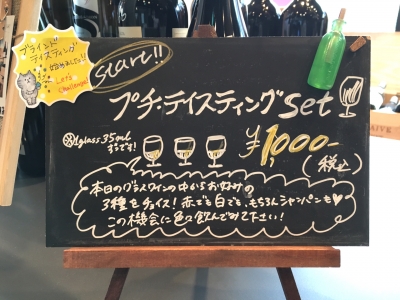 ブラインド
テイスティング
始めました!!
Let's
challenge!
start!!
プチ・テイスティングset
※1glass 35ml
ずつです!
¥1,000-
(税込)
本日のグラスワインの中からお好みの
3種をチョイス!赤でも白でも、もちろんシャンパンも♥
この機会に色々飲んでみて下さい!